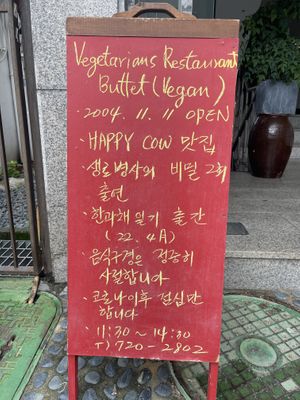 Vegetarians Restaurant
Buffet (Vegan)
· 2004. 11. 11 OPEN
· HAPPY COW 맛집
· 생로병사의 비밀 2회
출연
· 한과채 일기 출간
(22. 4月)
· 음식구경은 정중히
사절합니다
· 코로나이후 점심만
합니다
· 11:30 ~ 14:30
T) 720-2802